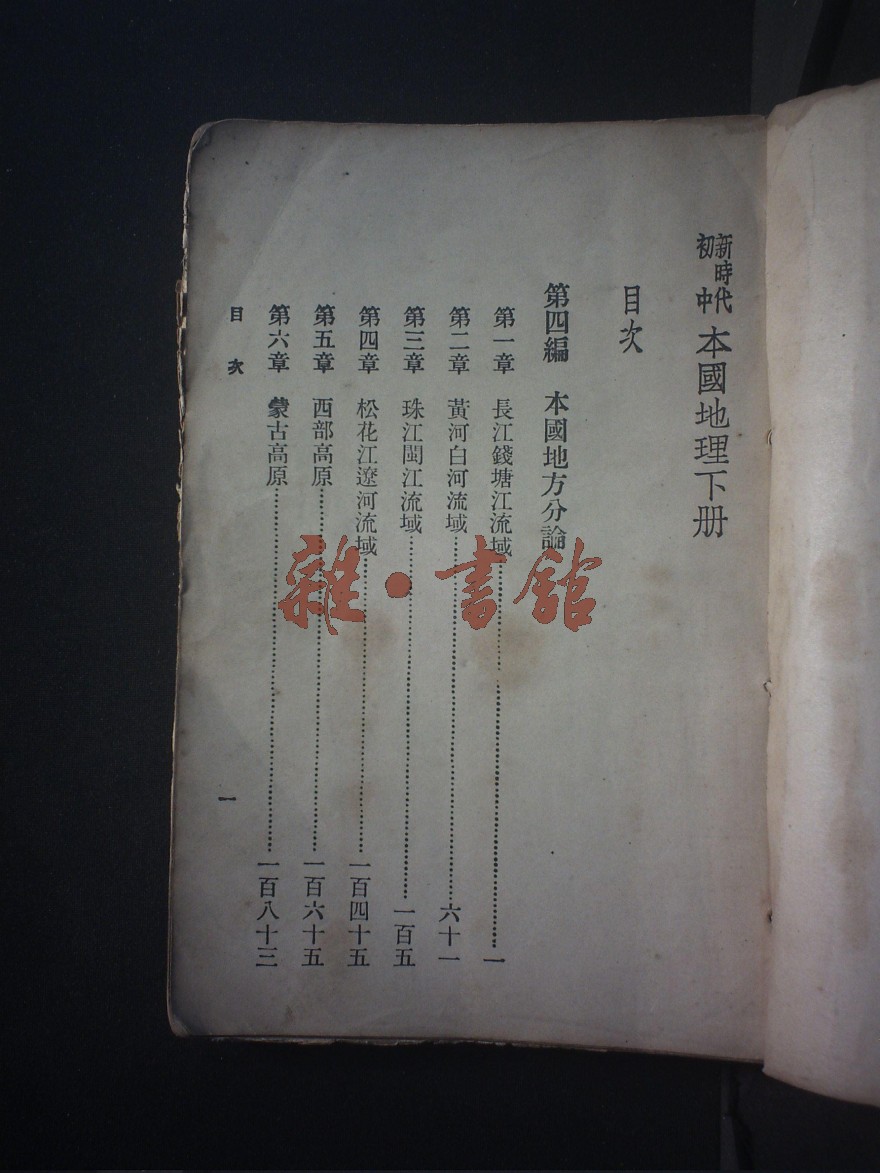 新時代
初中
本國地理下册
目次
第四編 本國地方分論
第一章 長江錢塘江流域 一
第二章 黃河白河流域 六十一
第三章 珠江閩江流域 一百五
第四章 松花江遼河流域 一百四十五
第五章 西部高原 一百六十五
第六章 蒙古高原 一百八十三
目次 一
雜·書館